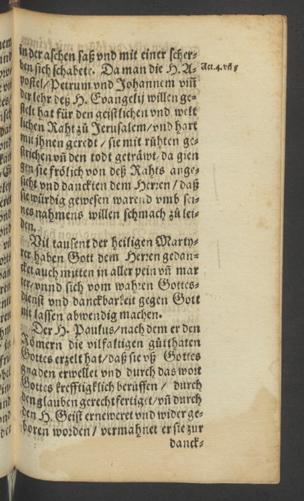 in der aschen saß vnd mit einer scher-
ben sich schabete. Da man die H. A-
postel/Petrum vnd Johannem vm̃
der lehr deß H. Evangelij willen ge-
stelt hat für den geistlichen vnd welt
lichen Raht zů Jerusalem/vnd hart
mit jhnen geredt/sie mit růhten ge-
strichen vñ den todt geträwt, da gien
gen sie frölich von deß Rahts ange-
sicht vnd danckten dem Herren/daß
sie würdig gewesen warend vmb sei-
nes nahmens willen schmach zů lei-
den.
Act. 4. vñ 5
Vil tausent der heiligen Marty-
rer haben Gott dem Herren gedan-
cket auch mitten in aller pein vñ mar
ter/vnnd sich vom wahren Gottes-
dienst vnd danckbarkeit gegen Gott
nit lassen abwendig machen.
Der H. Paulus/nach dem er den
Römern die vilfaltigen gůtthaten
Gottes erzelt hat/daß sie vß Gottes
gnaden erwellet vnd durch das wort
Gottes krefftigklich berüffen/durch
den glauben gerechtfertiget/vñ durch
den H. Geist erneweret vnd wider ge-
boren worden/vermahnet er sie zur
danck-